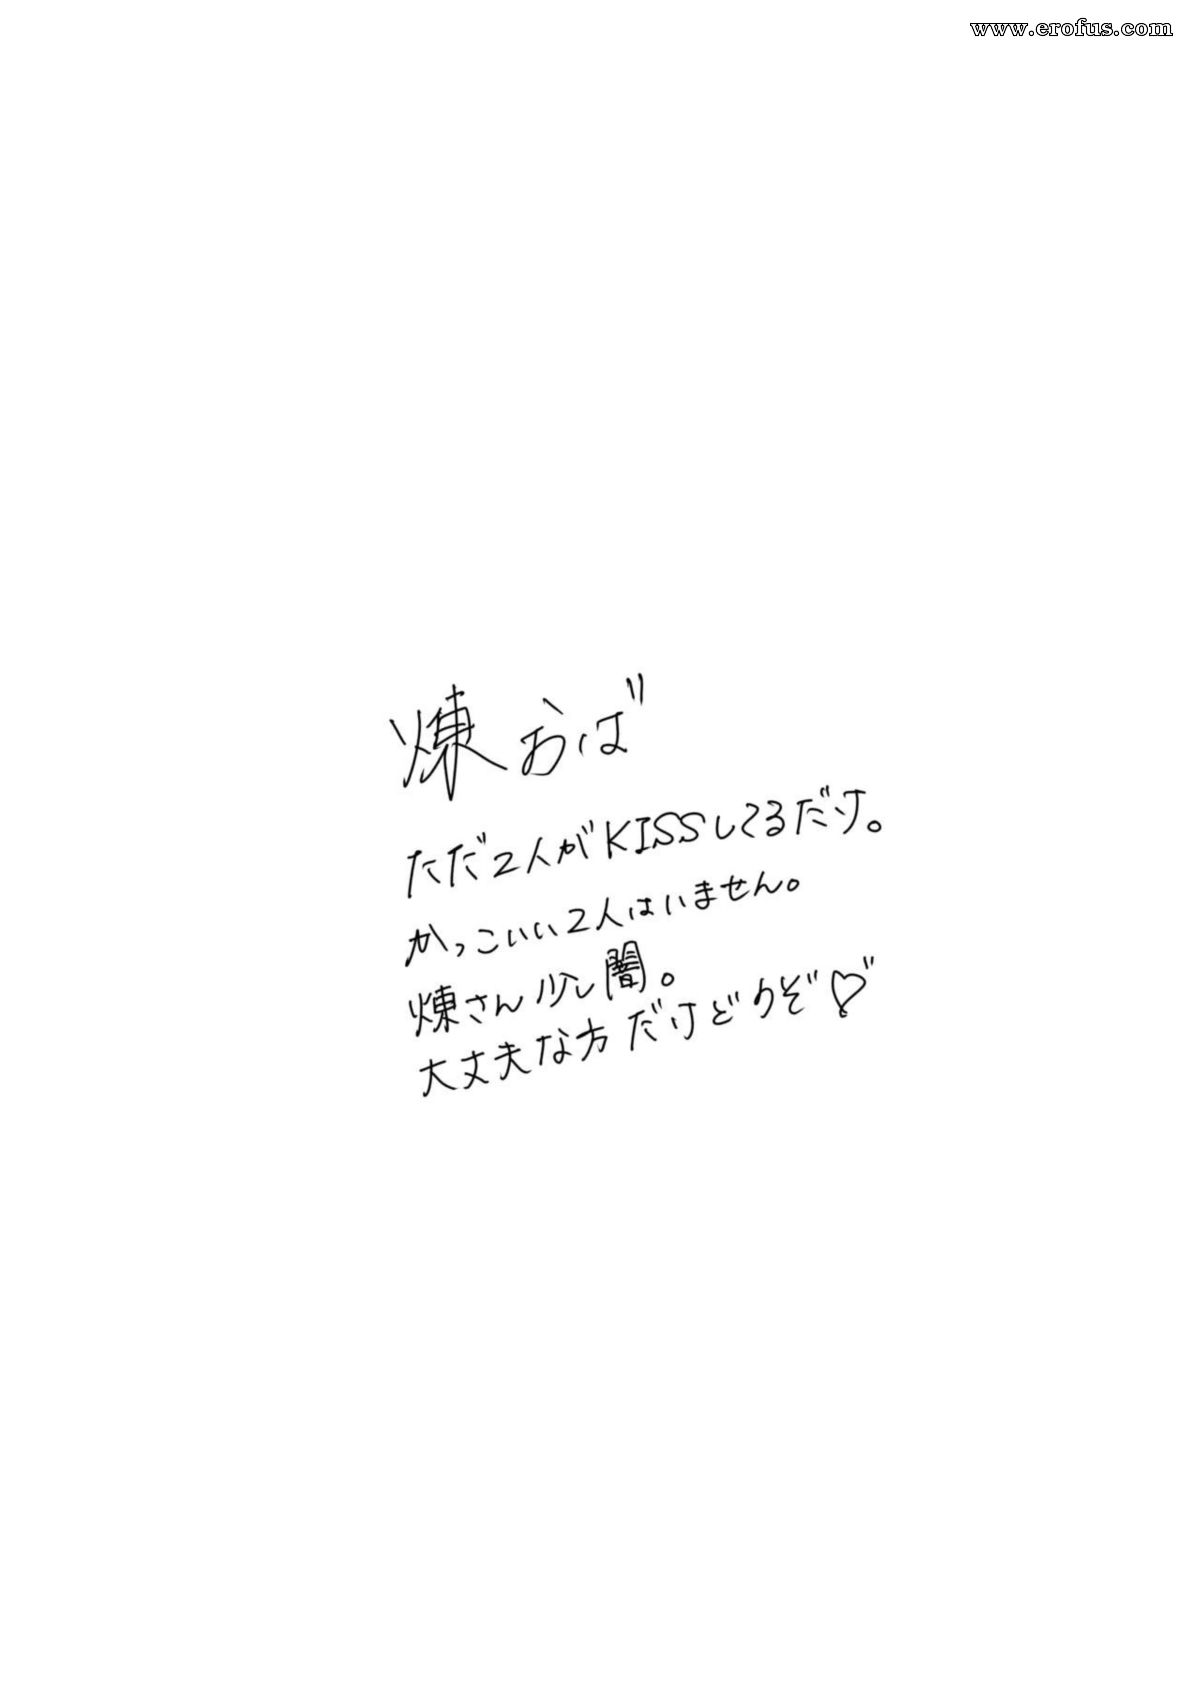 www.erofus.com
煉おば
ただ2人がKISSしてるだけ。
かっこいい2人はいません。
煉さん少し闇。
大丈夫な方だけどうぞ♡゛